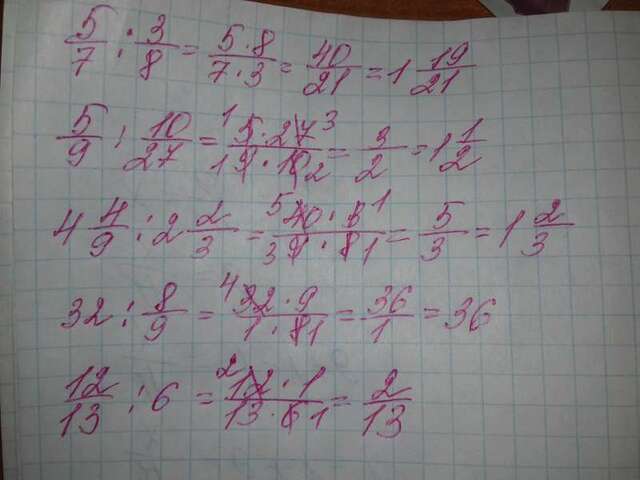 5/7 : 3/8 = 5·8/7·3 = 40/21 = 1 19/21
5/9 : 10/27 = ¹5·27³/₁9·10₂ = 3/2 = 1 1/2
4 4/9 : 2 2/3 = ⁵40·3¹/₃9·8₁ = 5/3 = 1 2/3
32 : 8/9 = ⁴32·9/1·8₁ = 36/1 = 36
12/13 : 6 = ²12·1/13·6₁ = 2/13